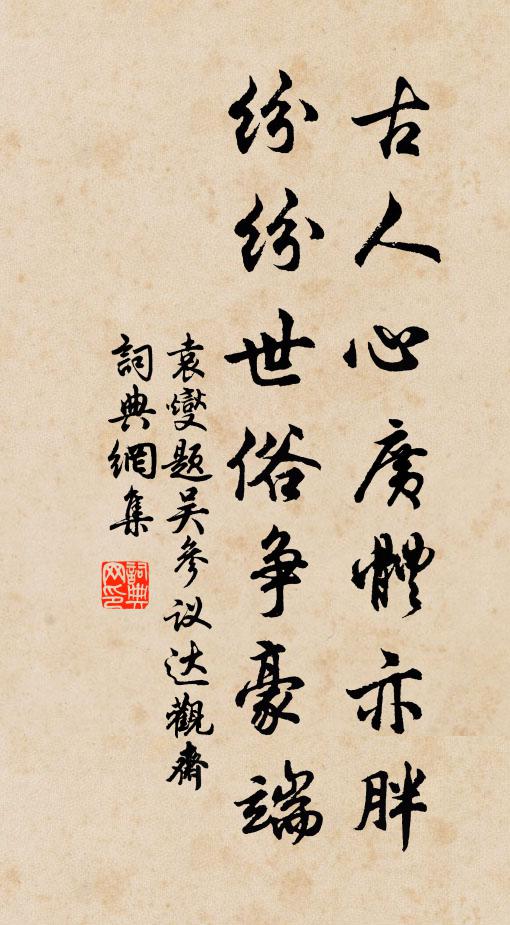 古人心广體亦胖
纷纷世俗争豪端
袁燮题吴参议达觀齋
詞典網集
詞典网印